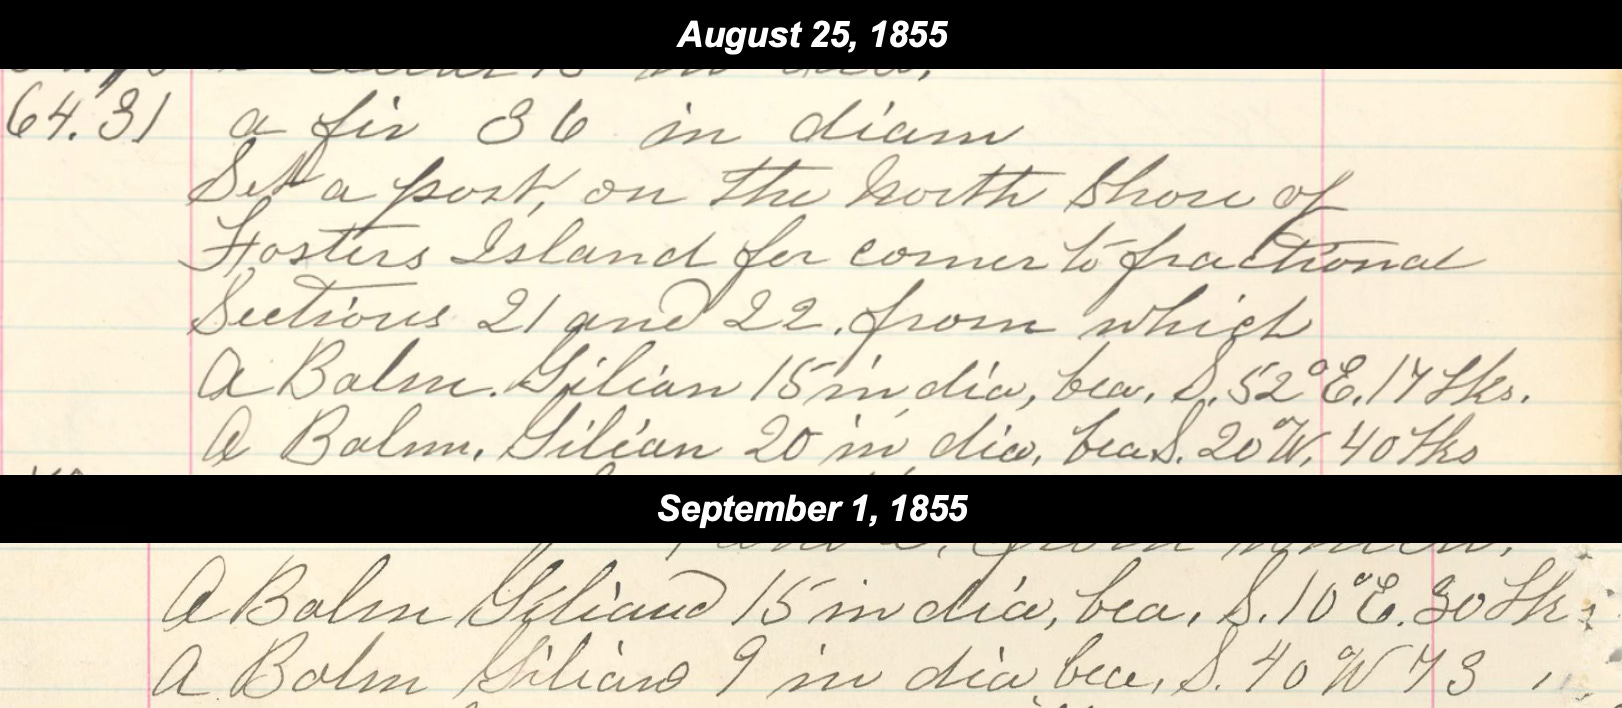 August 25, 1855
64.31 a fir 36 in diam
Set a post, on the North Shore of
Fosters Island for corner to fractional
Sections 21 and 22. from which
A Balm. Gilian 15 in dia, bea, S. 52°E. 17 lks.
A Balm. Gilian 20 in dia, bea S. 20°W. 40 lks
September 1, 1855
A Balm Giliand 15 in dia, bea, S. 10°E. 30 lks
A Balm Giliand 9 in dia bea, S. 40 W 73 "